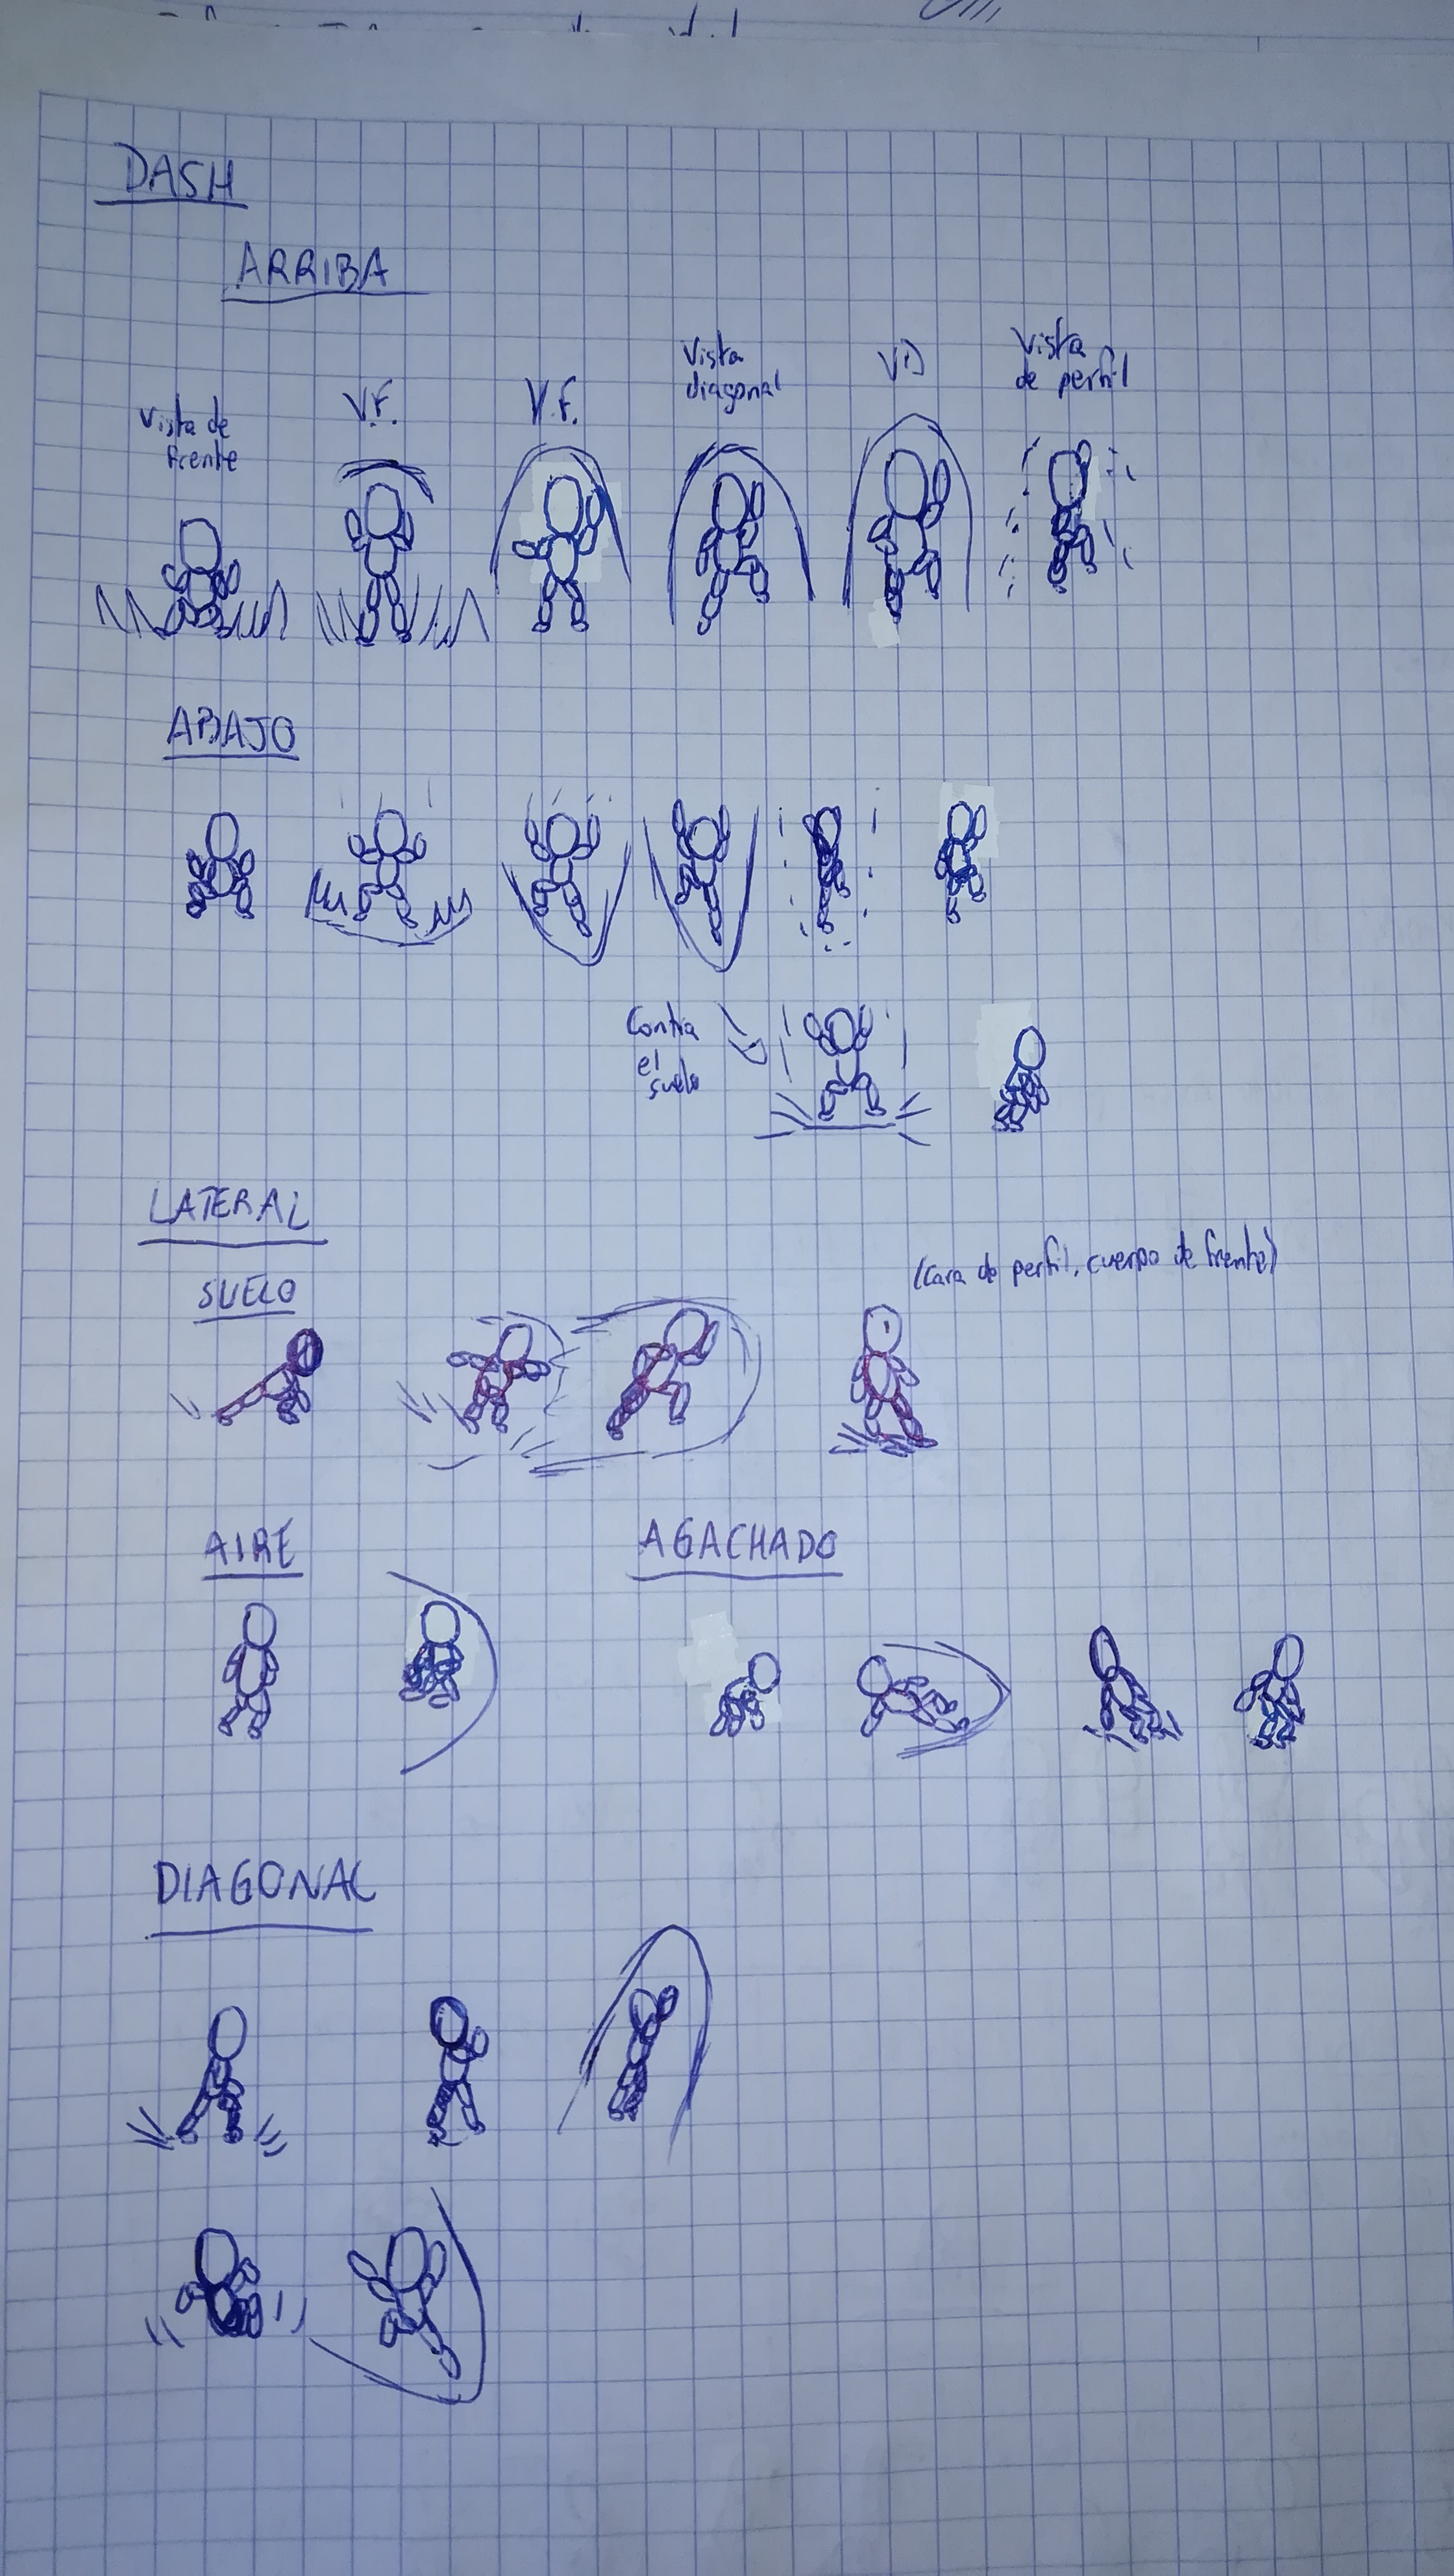 DASH
ARRIBA
Vista de
frente
V.F.
V.F.
Vista
diagonal
VD
Vista
de perfil
ABAJO
Contra
el
suelo
LATERAL
SUELO
(Cara de perfil, cuerpo de frente)
AIRE
AGACHADO
DIAGONAL